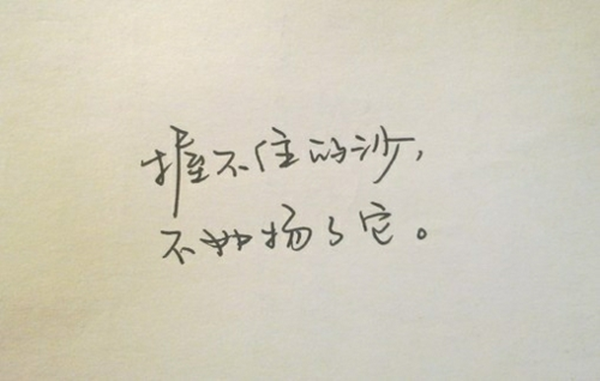 握不住的沙，
不如扬了它。